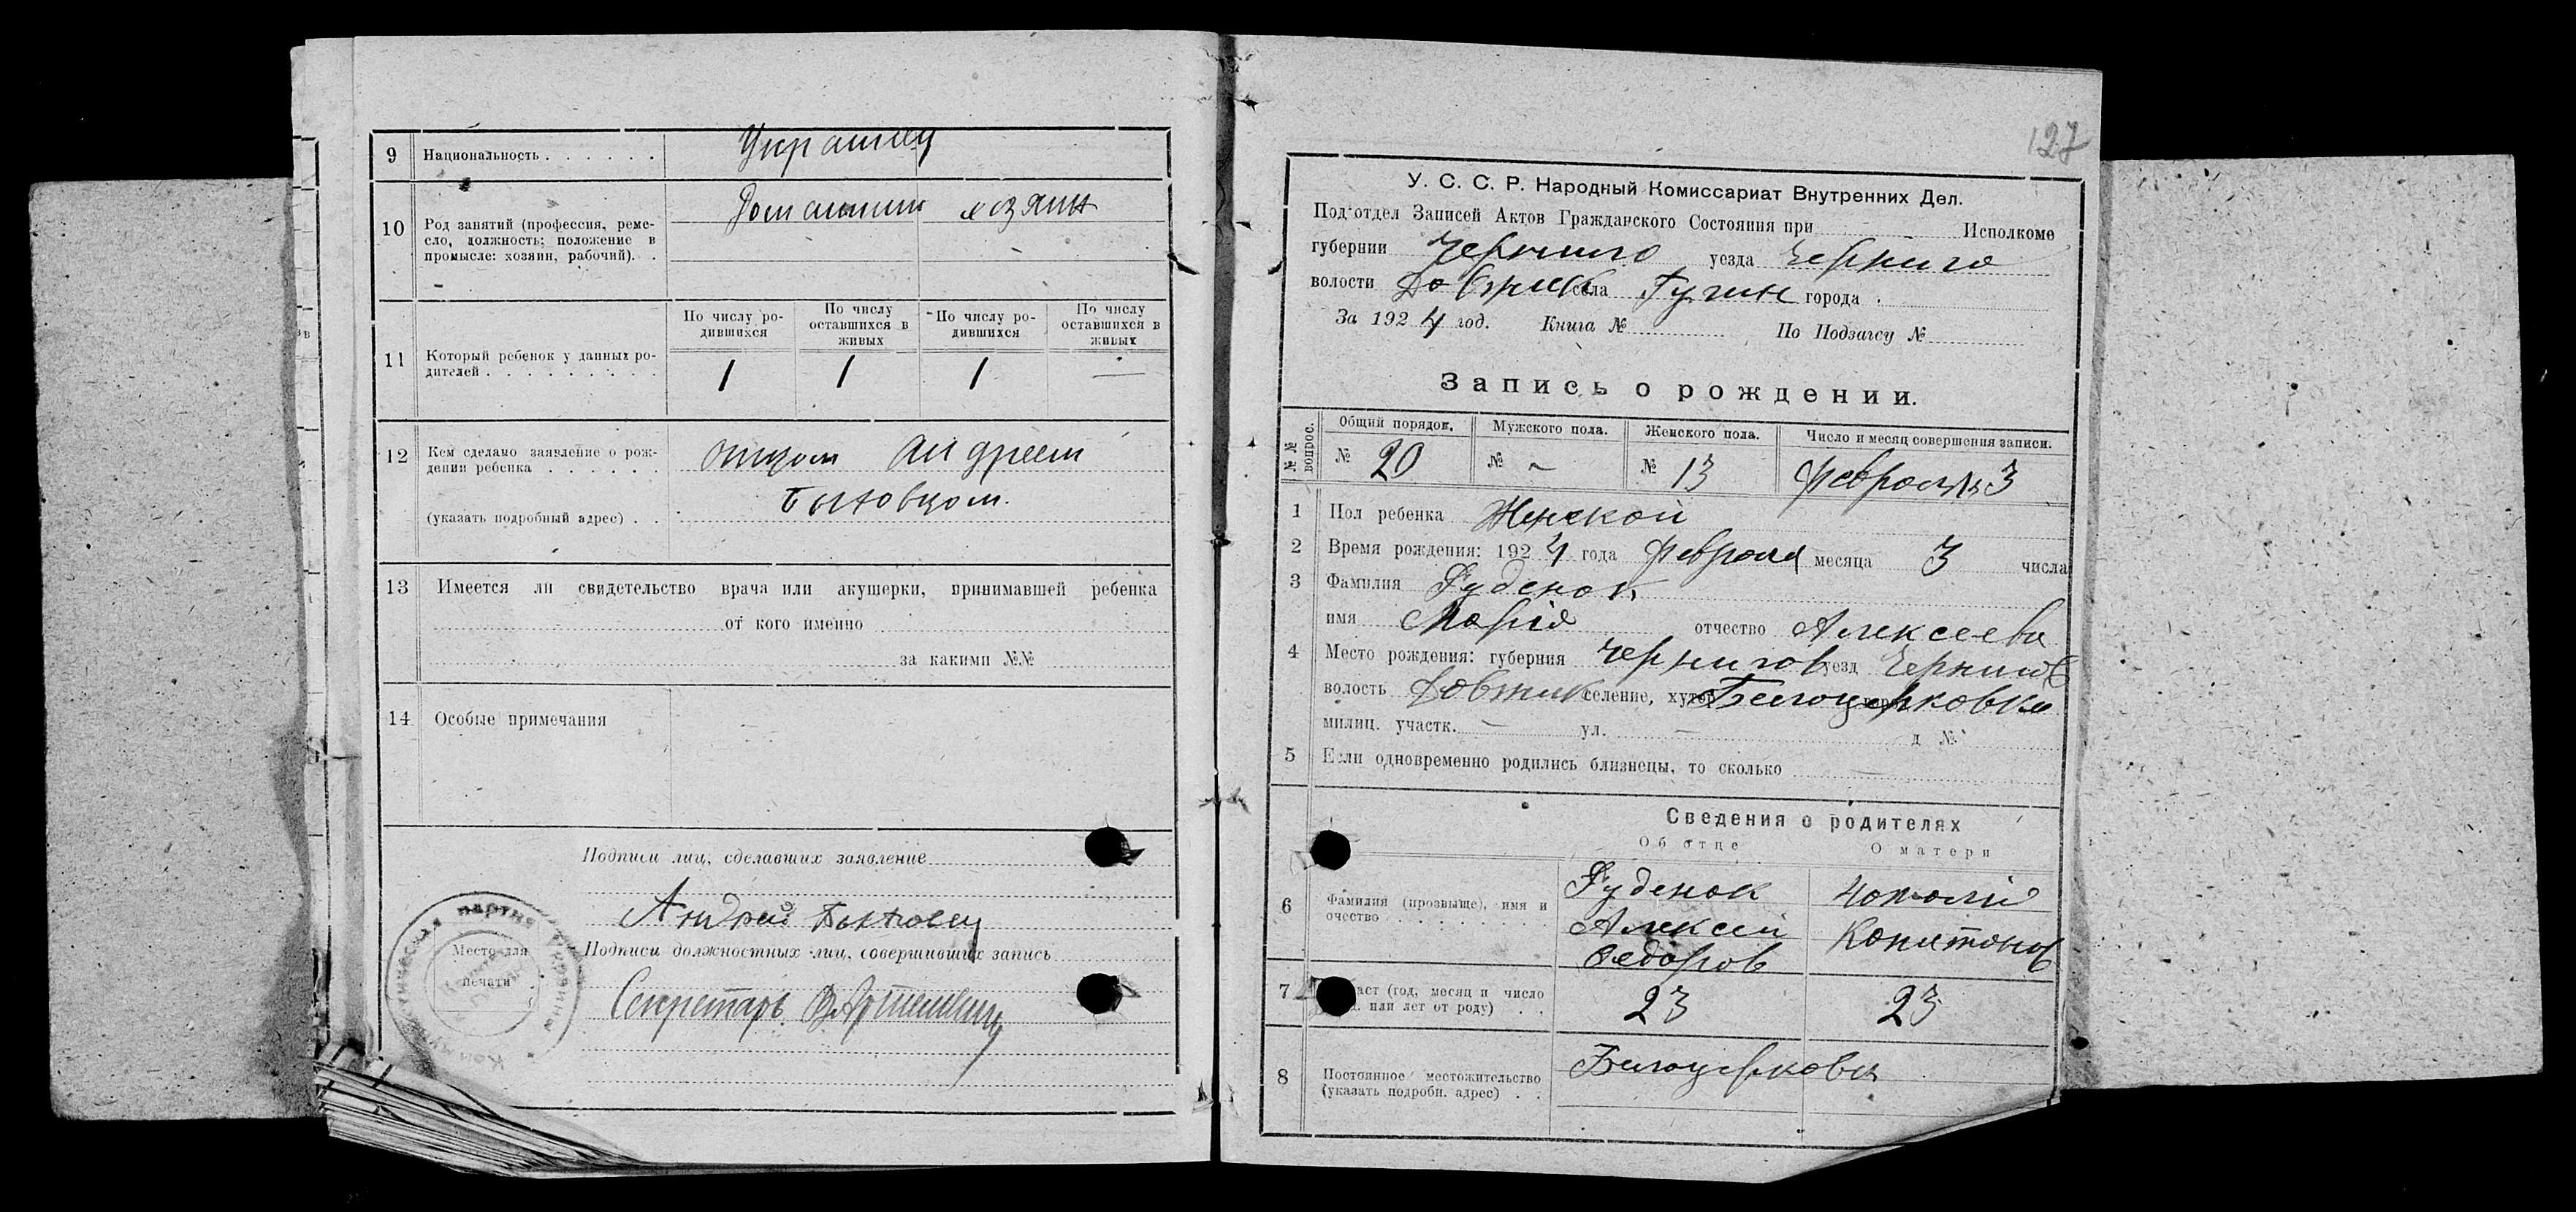 9 Национальность . . . . . . Украинец
10 Род занятий (профессия, реме-
сло, должность; положение в
промысле: хозяин, рабочий). .
Домашнии хозяин
По числу ро-
дившихся
По числу
оставшихся в
живых
По числу ро-
дившихся
По числу
оставшихся в
живых
11 Который ребенок у данных ро-
дителей . . . . . . . . .
1 1 1 —
12 Кем сделано заявление о рож-
дении ребенка . . . . . . отцом Андреем
(указать подробный адрес) . . Быховцом.
13 Имеется ли свидетельство врача или акушерки, принимавшей ребенка
от кого именно
за какими №№
14 Особые примечания
Подписи лиц, сделавших заявление
Андрей Быховец
Подписи должностных лиц, совершивших запись
Место для
печати
Секретарь
127
У. С. С. Р. Народный Комиссариат Внутренних Дел.
Под'отдел Записей Актов Гражданского Состояния при Исполкоме
губернии Черниго уезда Черниго
волости Довжик села Гучин города
За 1924 год. Книга № По Подзагсу №
Запись о рождении.
№№ вопрос.
Общий порядок. Мужского пола. Женского пола. Число и месяц совершения записи.
№ 20 № ~ № 13 Февраля 3
1 Пол ребенка Женской
2 Время рождения: 1924 года Февраля месяца 3 числа
3 Фамилия Руденок
имя Марія отчество Алексеева
4 Место рождения: губерния Чернигов уезд Чернигов
волость Довжик селение, хутор Белоцерковка
милиц. участк. — ул. — д №
5 Если одновременно родились близнецы, то сколько —
Сведения о родителях
Об отце О матери
6 Фамилия (прозвище), имя и
очество . . . . . . .
Руденок
Алексей
Федоров
7 аст (год, месяц и число
. или лет от роду) . . 23 23
8 Постоянное местожительство
(указать подробн. адрес) . .
Белоцерковка